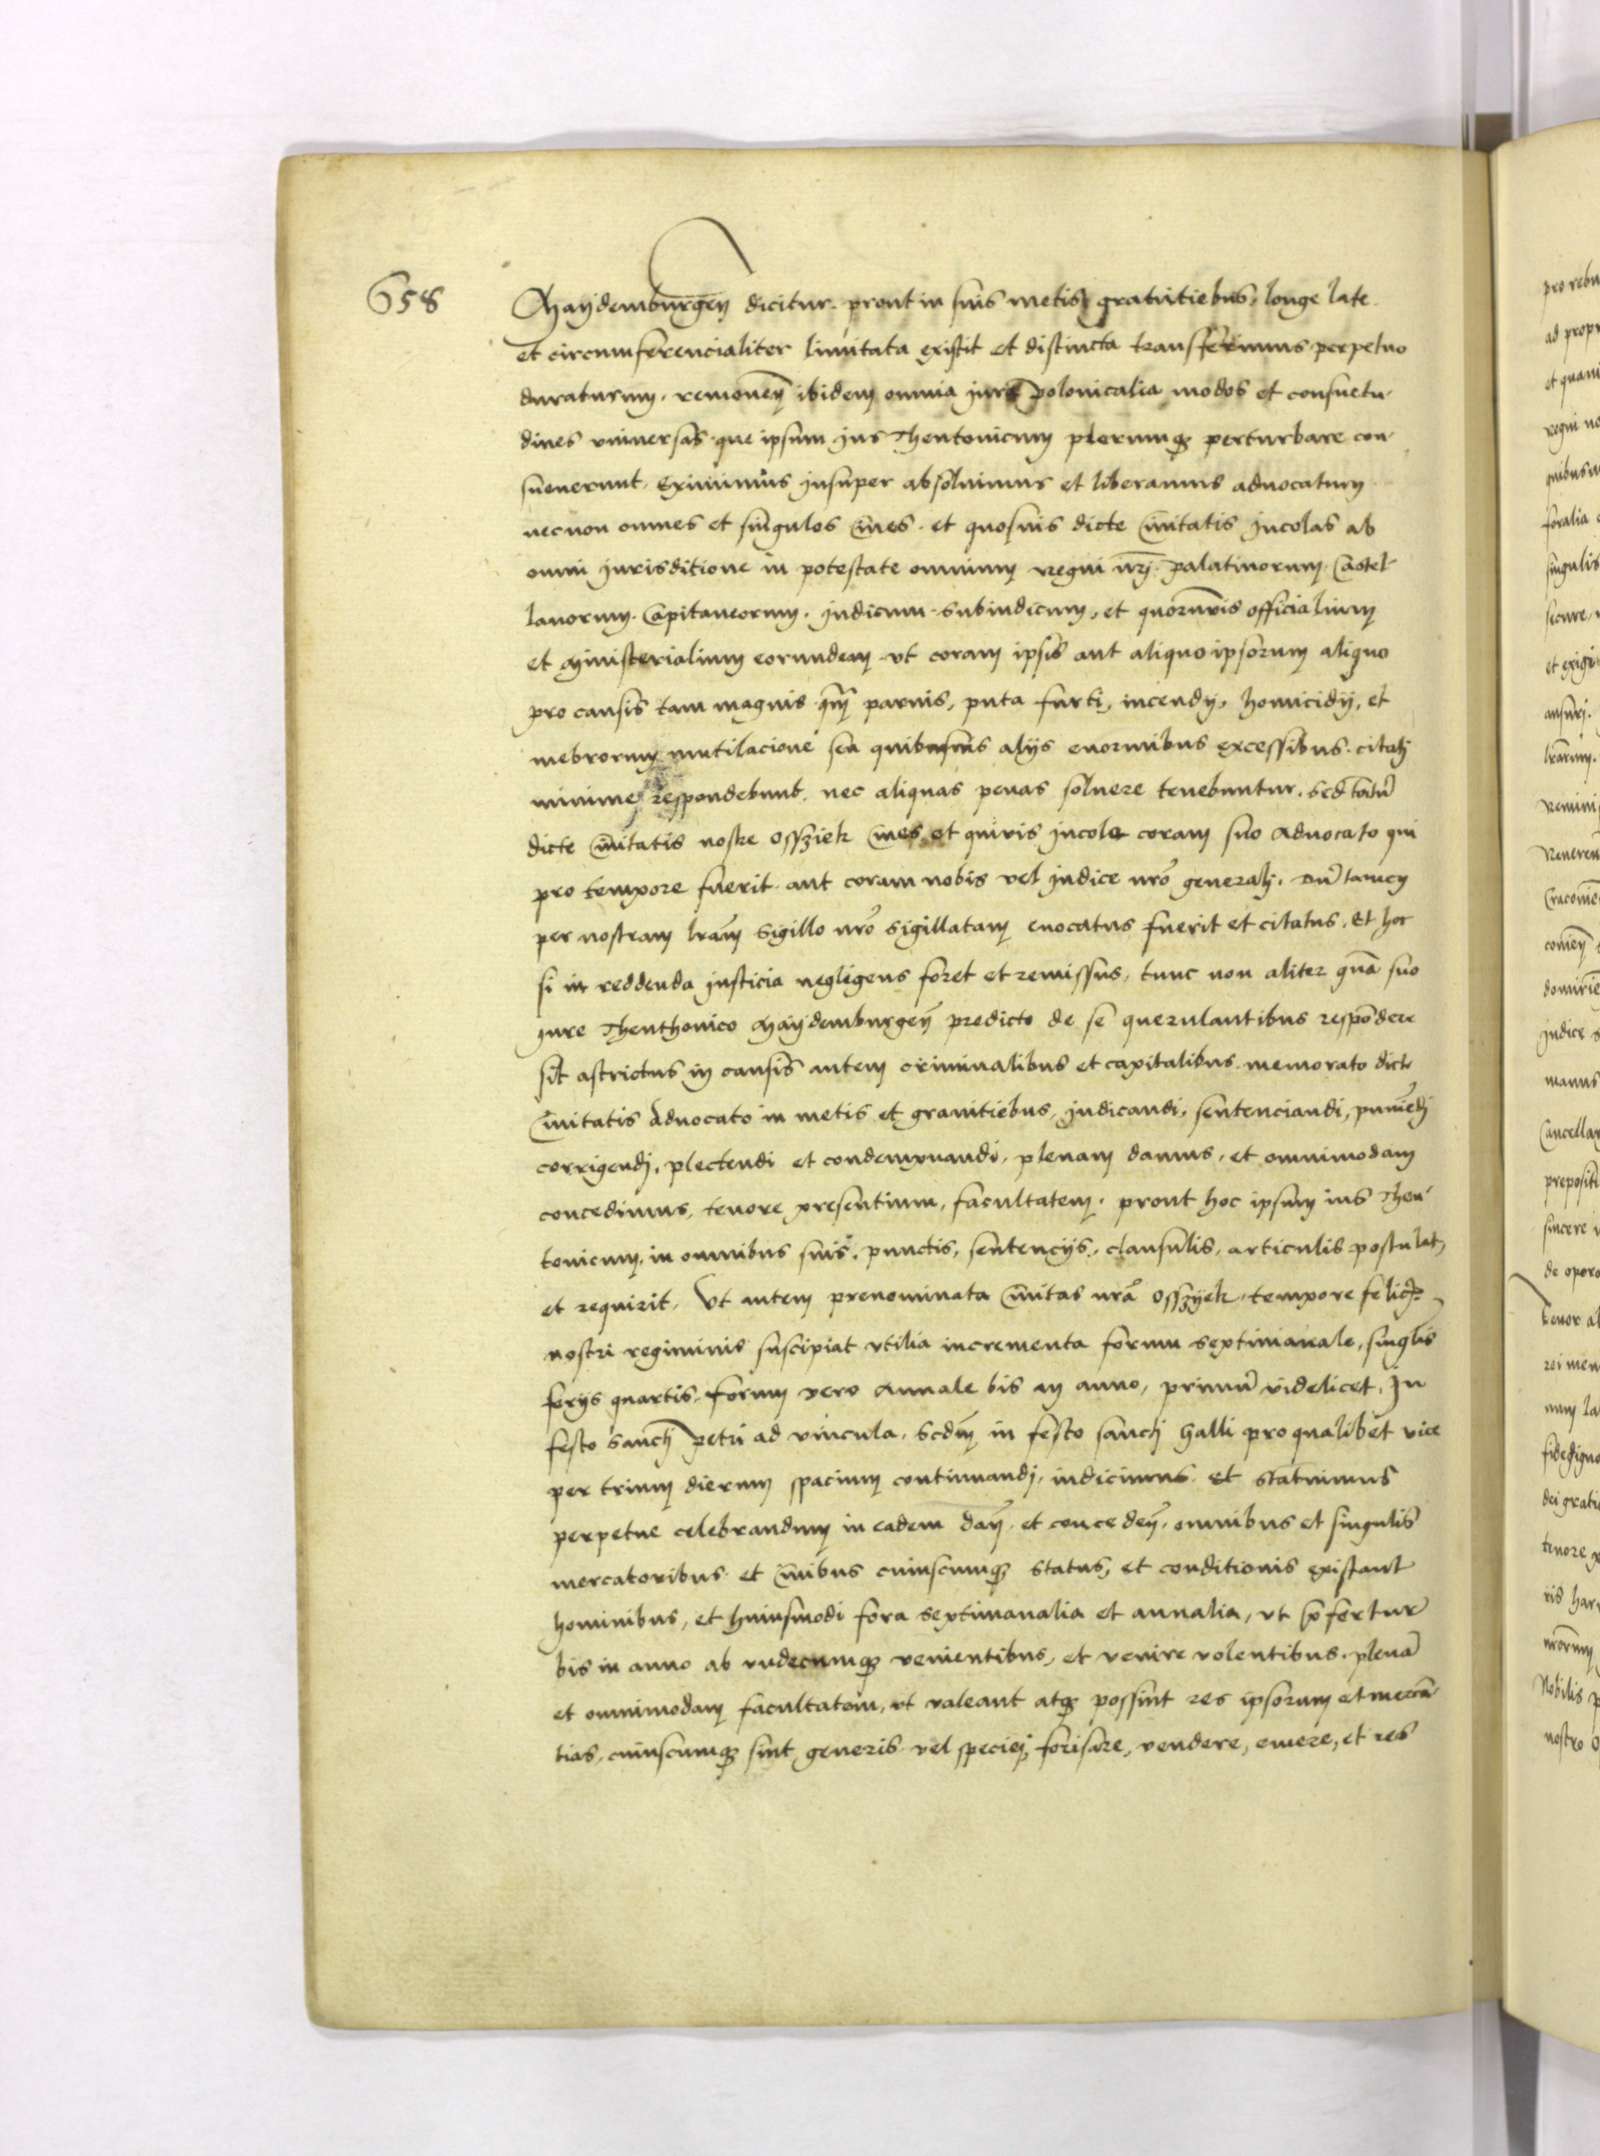 658
Maÿdemburgen̄ dicitur. prout in suis metis, gratiitiebus, longe late
et circumferencialiter limitata existit et distincta transferimus perpetuo
duraturum. remouen̄ ibidem omnia jura polonicalia modos et consuetu-
dines vniuersas que ipsum jus Theutonicum plerumqʒ perturbare con-
sueuerunt. Eximimus jnsuper absoluimus et liberamus aduocatum
necnon omnes et singulos Ciues. et quosuis dicte Ciuitatis jncolas ab
omni jurisditione in potestate omnium regni nrj. palatinorum. Castel-
lanorum. Capitaneorum. judicum. Subiudicum, et quorumvis officialium
et Ministerialium eorundem. vt coram ipsis aut aliquo ipsorum aliquo
pro causis tam magnis qm̄ paruis, puta furti, incendÿ, homicidÿ, et
mebrorum mutilacione seu quibusuis alÿs enormibus excessibus. citatj
minime respondebunt. nec aliquas penas soluere tenebuntur. Sed tatū
dicte Ciuitatis nostre Ossziek Ciues et quiuis jncole coram suo Aduocato qui
pro tempore fuerit. aut coram nobis vel judice nrō generalj. dū tamen
per nostram lrām Sigillo nrō sigillatam euocatus fuerit et citatus. Et hoc
si in reddenda justicia negligens foret et remissus, tunc non aliter quā suo
jure Theuthonico Maÿdemburgen̄ predicto de se querulantibus respōdere
sit astrictus in causis autem criminalibus et capitalibus memorato dicte
Ciuitatis Aduocato in metis et granitiebus, judicandi, sentenciandi, puniēdj
corrigendj, plectendi et condempnandi, plenam damus, et omnimodam
concedimus, tenore presentium, facultatem. prout hoc ipsum ius Theu-
tonicum, in omnibus suis, punctis, sentencÿs, clausulis, articulis postulat,
et requirit. Vt autem prenominata Ciuitas nrā Osszÿek, tempore felicis
nostri regiminis suscipiat vtilia incrementa forum septimanale, singlis
ferÿs quartis, forum vero Annale bis in anno, primū videlicet. In
festo Sanctj Petri ad vincula, Scdm̄ in festo sanctj Galli pro qualibet vice
per trium dierum spacium continuandj, indicimus. Et statuimus
perpetue celebrandum in eadem dan̄. et conceden̄. omnibus et singulis
mercatoribus et Ciuibus cuiuscumqʒ status, et conditionis existant
hominibus, et huiusmodi fora septimanalia et annalia, vt p̄fertur
bis in anno ab vndecumqʒ venientibus, et venire volentibus. plenā
et omnimodam facultatem, vt valeant atqʒ possint res ipsorum et mercā-
tias, cuiuscumqʒ sint generis vel speciej, forisare, vendere, emere, et res